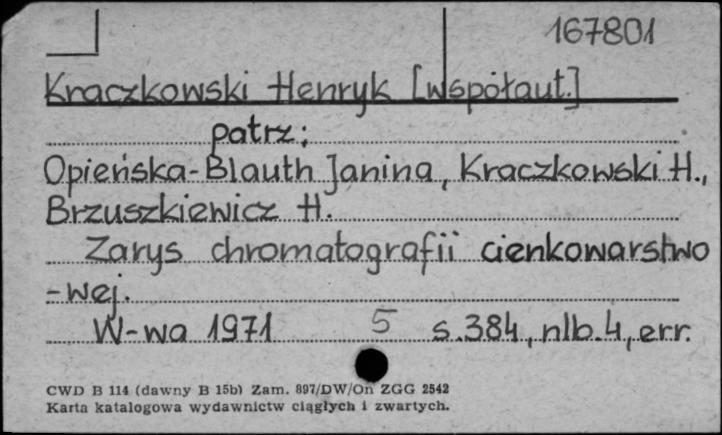 167801
Kraczkowski Henryk [współaut.]
patrz:
Opieńska-Blauth Janina, Kraczkowski H.,
Brzuszkiewicz H.
Zarys chromatografii cienkowarstwo
-wej.
W-wa 1971 5 s.384, nlb.4, err.
CWD B 114 (dawny B 15b) Zam. 897/DW/On ZGG 2542
Karta katalogowa wydawnictw ciągłych i zwartych.